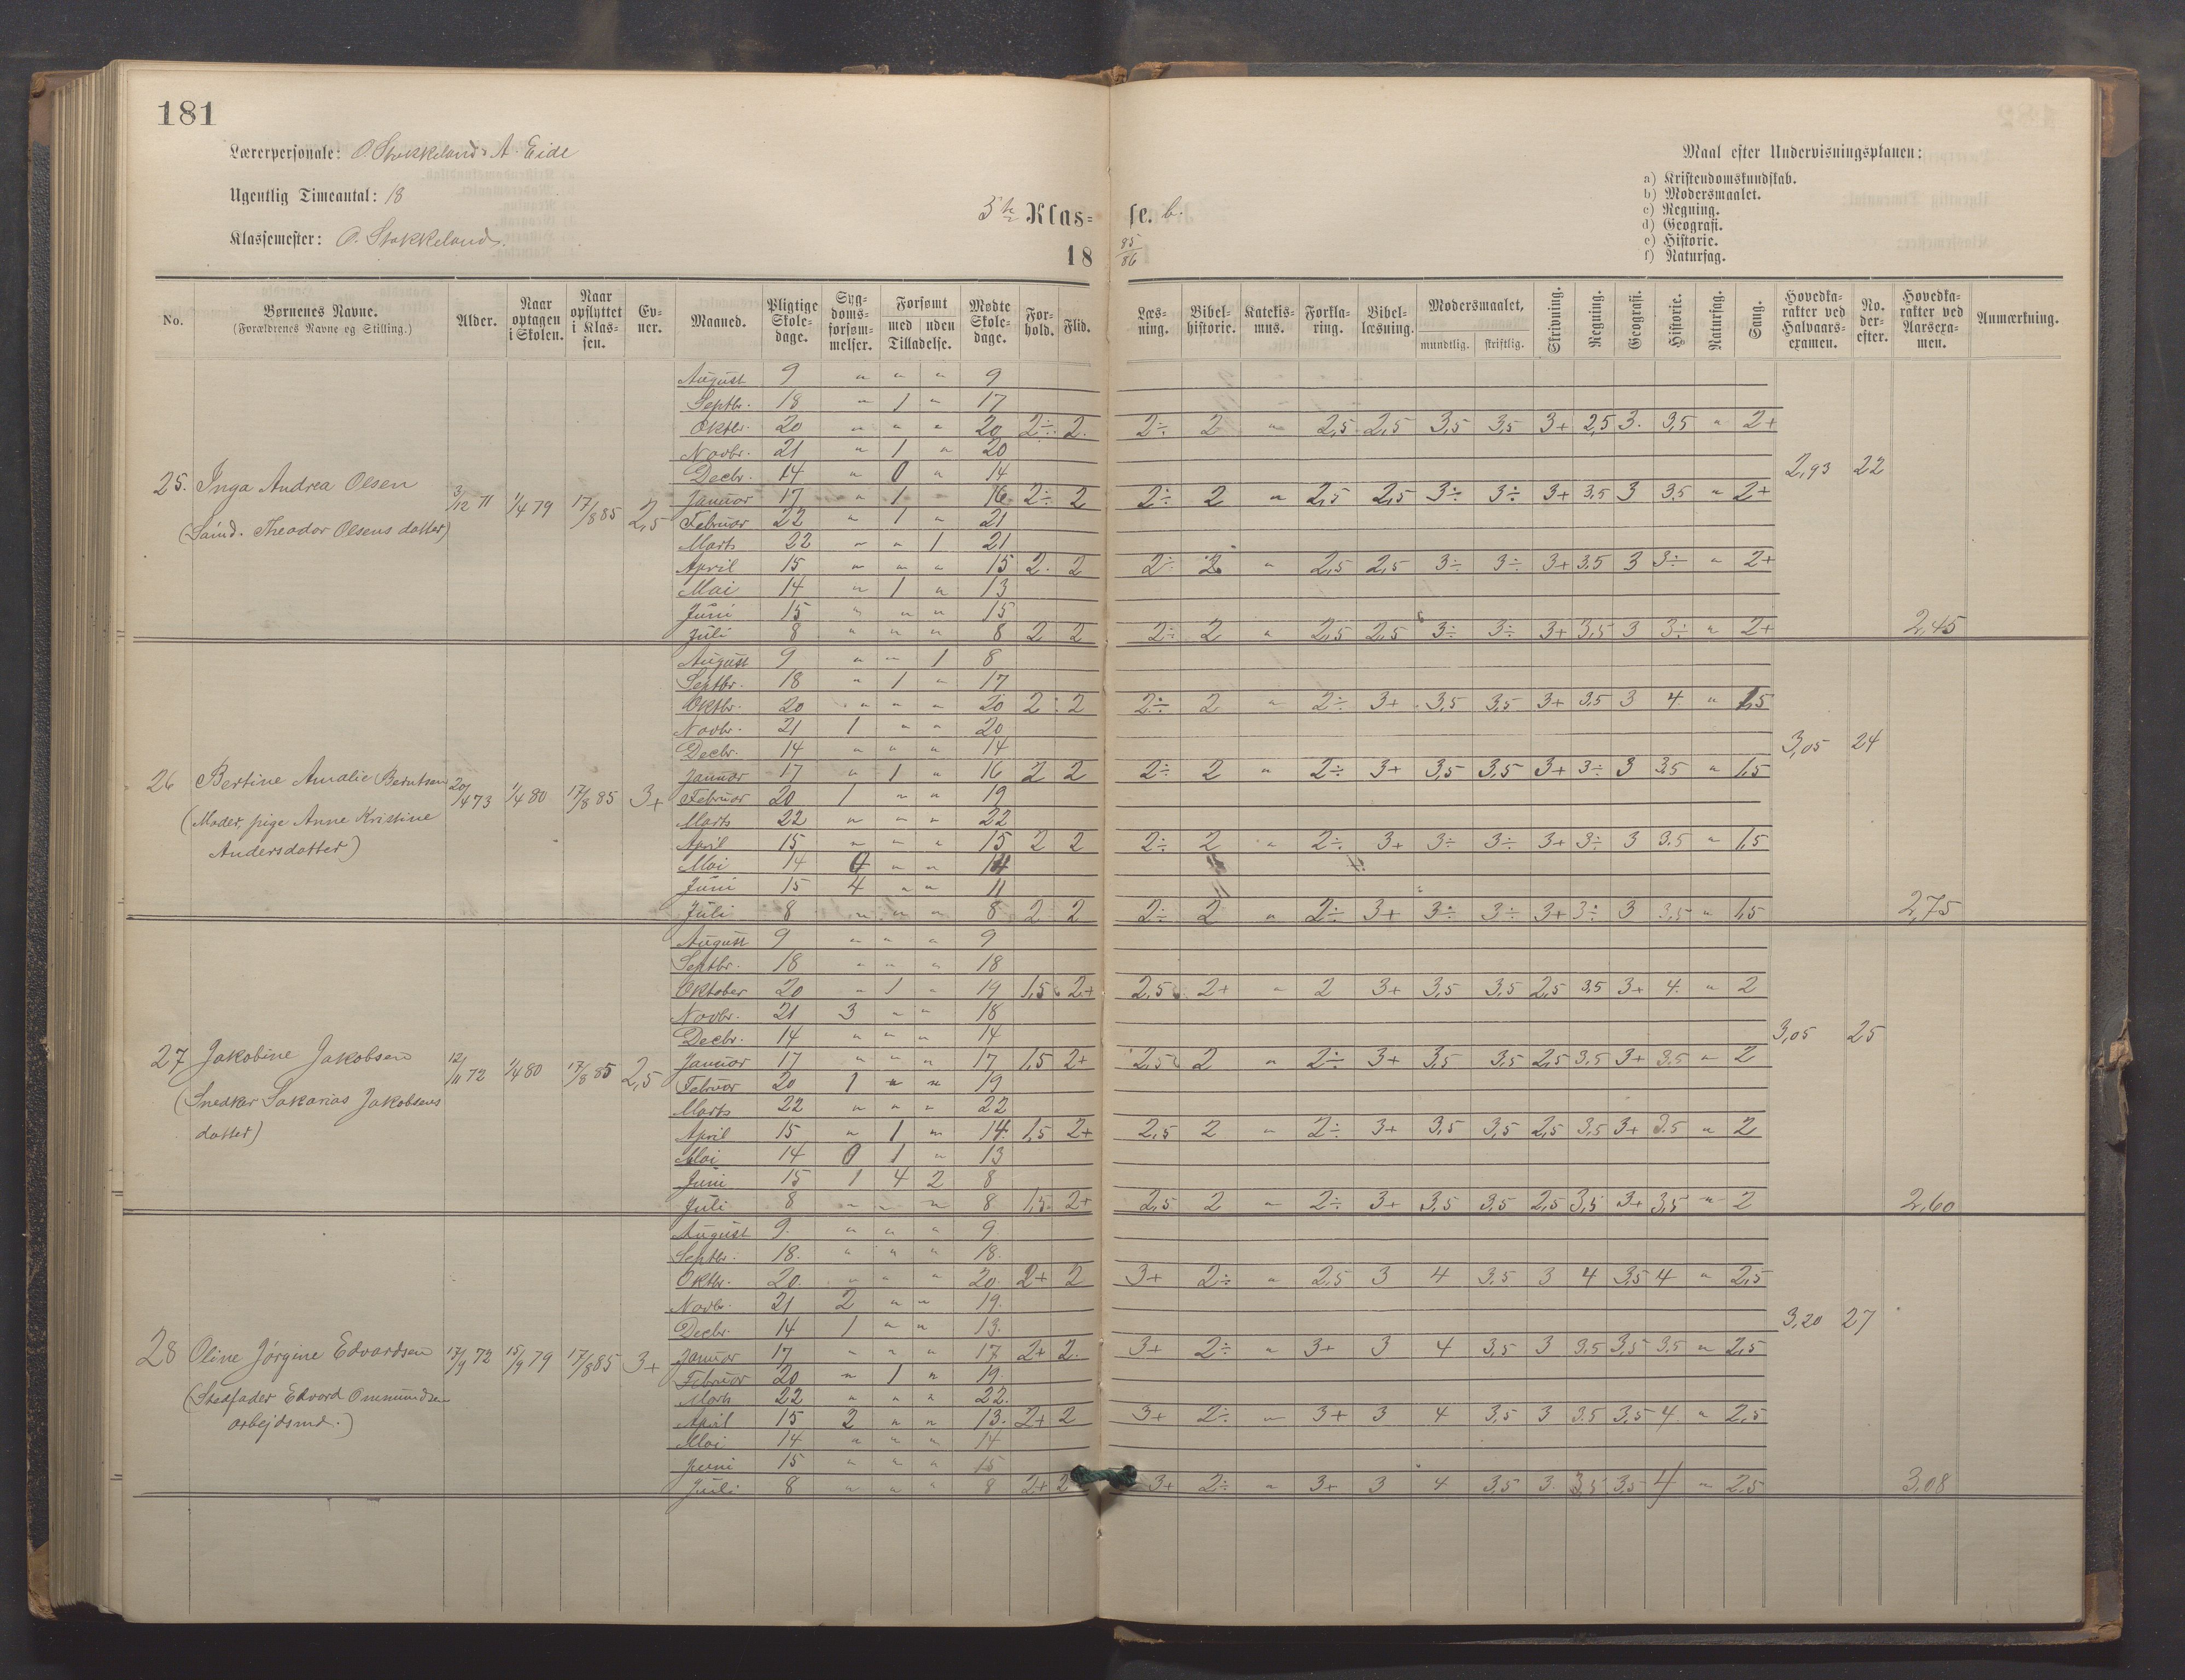 181
Lærerpersonale: O. Stokkeland & A. Eide
Ugentlig Timeantal: 18
Klassemester: O. Stokkeland.
5te Klas=
18
se. b.
85/86
Maal efter Undervisningsplanen:
a) Kristendomskundskab.
b) Modersmaalet.
c) Regning.
d) Geografi.
e) Historie.
f) Naturfag.
No. | Børnenes Navne. (Forældrenes Navne og Stilling.) | Alder. | Naar optagen i Skolen. | Naar opflyttet i Klassen. | Evner. | Maaned. | Pligtige Skoledage. | Sygdomsforsømmelser. | Forsømt med / uden Tilladelse. | Mødte Skoledage. | Forhold. | Flid. | Læsning. | Bibelhistorie. | Katekismus. | Forklaring. | Bibellæsning. | Modersmaalet, mundtlig. | skriftlig. | Skrivning. | Regning. | Geografi. | Historie. | Naturfag. | Sang. | Hovedkarakter ved Halvaarsexamen. | No. derefter. | Hovedkarakter ved Aarsexamen. | Anmærkning.
25. Inga Andrea Olsen 3/12 71 1/4 79 17/8 85 2,5
(Sømd. Theodor Olsens datter)
August 9 " " " 9
Septbr. 18 " 1 " 17
Oktbr. 20 " " " 20 2÷ 2. 2÷ 2 " 2,5 2,5 3,5 3,5 3+ 2,5 3. 3,5 " 2+
Novbr. 21 " 1 " 20
Decbr. 14 " 0 " 14 2,93 22
Januar 17 " 1 " 16 2÷ 2 2÷ 2 " 2,5 2,5 3÷ 3÷ 3+ 3,5 3 3,5 " 2+
Februar 22 " 1 " 21
Marts 22 " " 1 21
April 15 " " " 15 2. 2 2÷ 2 " 2,5 2,5 3÷ 3÷ 3+ 3,5 3 3÷ " 2+
Mai 14 " 1 " 13
Juni 15 " " " 15
Juli 8 " " " 8 2 2 2÷ 2 " 2,5 2,5 3÷ 3÷ 3+ 3,5 3 3÷ " 2+ 2,45
26 Bertine Amalie Berntsen 20/4 73 1/4 80 17/8 85 3+
(Moder, pige Anne Kristine
Andersdatter)
August 9 " " 1 8
Septbr. 18 " 1 " 17
Oktbr. 20 " " " 20 2 2 2÷ 2 " 2÷ 3+ 3,5 3,5 3+ 3,5 3 4 " 1,5
Novbr. 21 1 " " 20
Decbr. 14 " " " 14 3,05 24
Januar 17 " 1 " 16 2 2 2÷ 2 " 2÷ 3+ 3,5 3,5 3+ 3÷ 3 3,5 " 1,5
Februar 20 1 " " 19
Marts 22 " " " 22
April 15 " " " 15 2 2 2÷ 2 " 2÷ 3+ 3÷ 3÷ 3+ 3÷ 3 3,5 " 1,5
Mai 14 " " 14
Juni 15 4 " " 11
Juli 8 " " " 8 2 2 2÷ 2 " 2÷ 3+ 3÷ 3÷ 3+ 3÷ 3 3,5 " 1,5 2,75
27 Jakobine Jakobsen 12/11 72 1/4 80 17/8 85 2,5
(Snedker Sakarias Jakobsens
datter)
August 9 " " " 9
Septbr. 18 " " " 18
Oktober 20 " 1 " 19 1,5 2+ 2,5 2+ " 2 3+ 3,5 3,5 2,5 3,5 3+ 4. " 2
Novbr. 21 3 " " 18
Decbr. 14 " " " 14 3,05 25
Januar 17 " " " 17 1,5 2+ 2,5 2 " 2÷ 3+ 3,5 3,5 2,5 3,5 3+ 3,5 " 2
Februar 20 1 " " 19
Marts 22 " " " 22
April 15 " 1 " 14 1,5 2+ 2,5 2 " 2÷ 3+ 3,5 3,5 2,5 3,5 3+ 3,5 " 2
Mai 14 0 1 " 13
Juni 15 1 4 2 8
Juli 8 " " " 8 1,5 2+ 2,5 2 " 2÷ 3+ 3,5 3,5 2,5 3,5 3+ 3,5 " 2 2,60
28 Oline Jørgine Edvardsen 17/9 72 15/9 79 17/8 85 3+
(Stedfader Edvard Ommundsen
arbejdsmd.)
August 9. " " " 9.
Septbr. 18. " " " 18.
Oktbr. 20. " " " 20. 2+ 2 3+ 2÷ " 2,5 3 4 3,5 3 4 3,5 4 " 2,5
Novbr. 21 2 " " 19.
Decbr. 14 1 " " 13. 3,20 27
Januar 17 " " " 17 2+ 2. 3+ 2÷ " 3+ 3 4 3,5 3 3,5 3,5 3,5 " 2,5
Februar 20 " 1 " 19.
Marts 22 " " " 22.
April 15 2 " " 13. 2+ 2 3+ 2÷ " 3+ 3 4 3,5 3 3,5 3,5 4 " 2,5
Mai 14 " " " 14
Juni 15 " " " 15
Juli 8 " " " 8 2+ 2 3+ 2÷ " 3+ 3 4 3,5 3 3,5 3,5 4 " 2,5 3,08